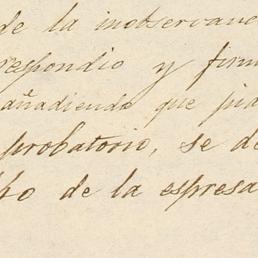 de la inobservanc
respondio y firm
añadiendo que pid
probatorio, se de
ho de la espresa